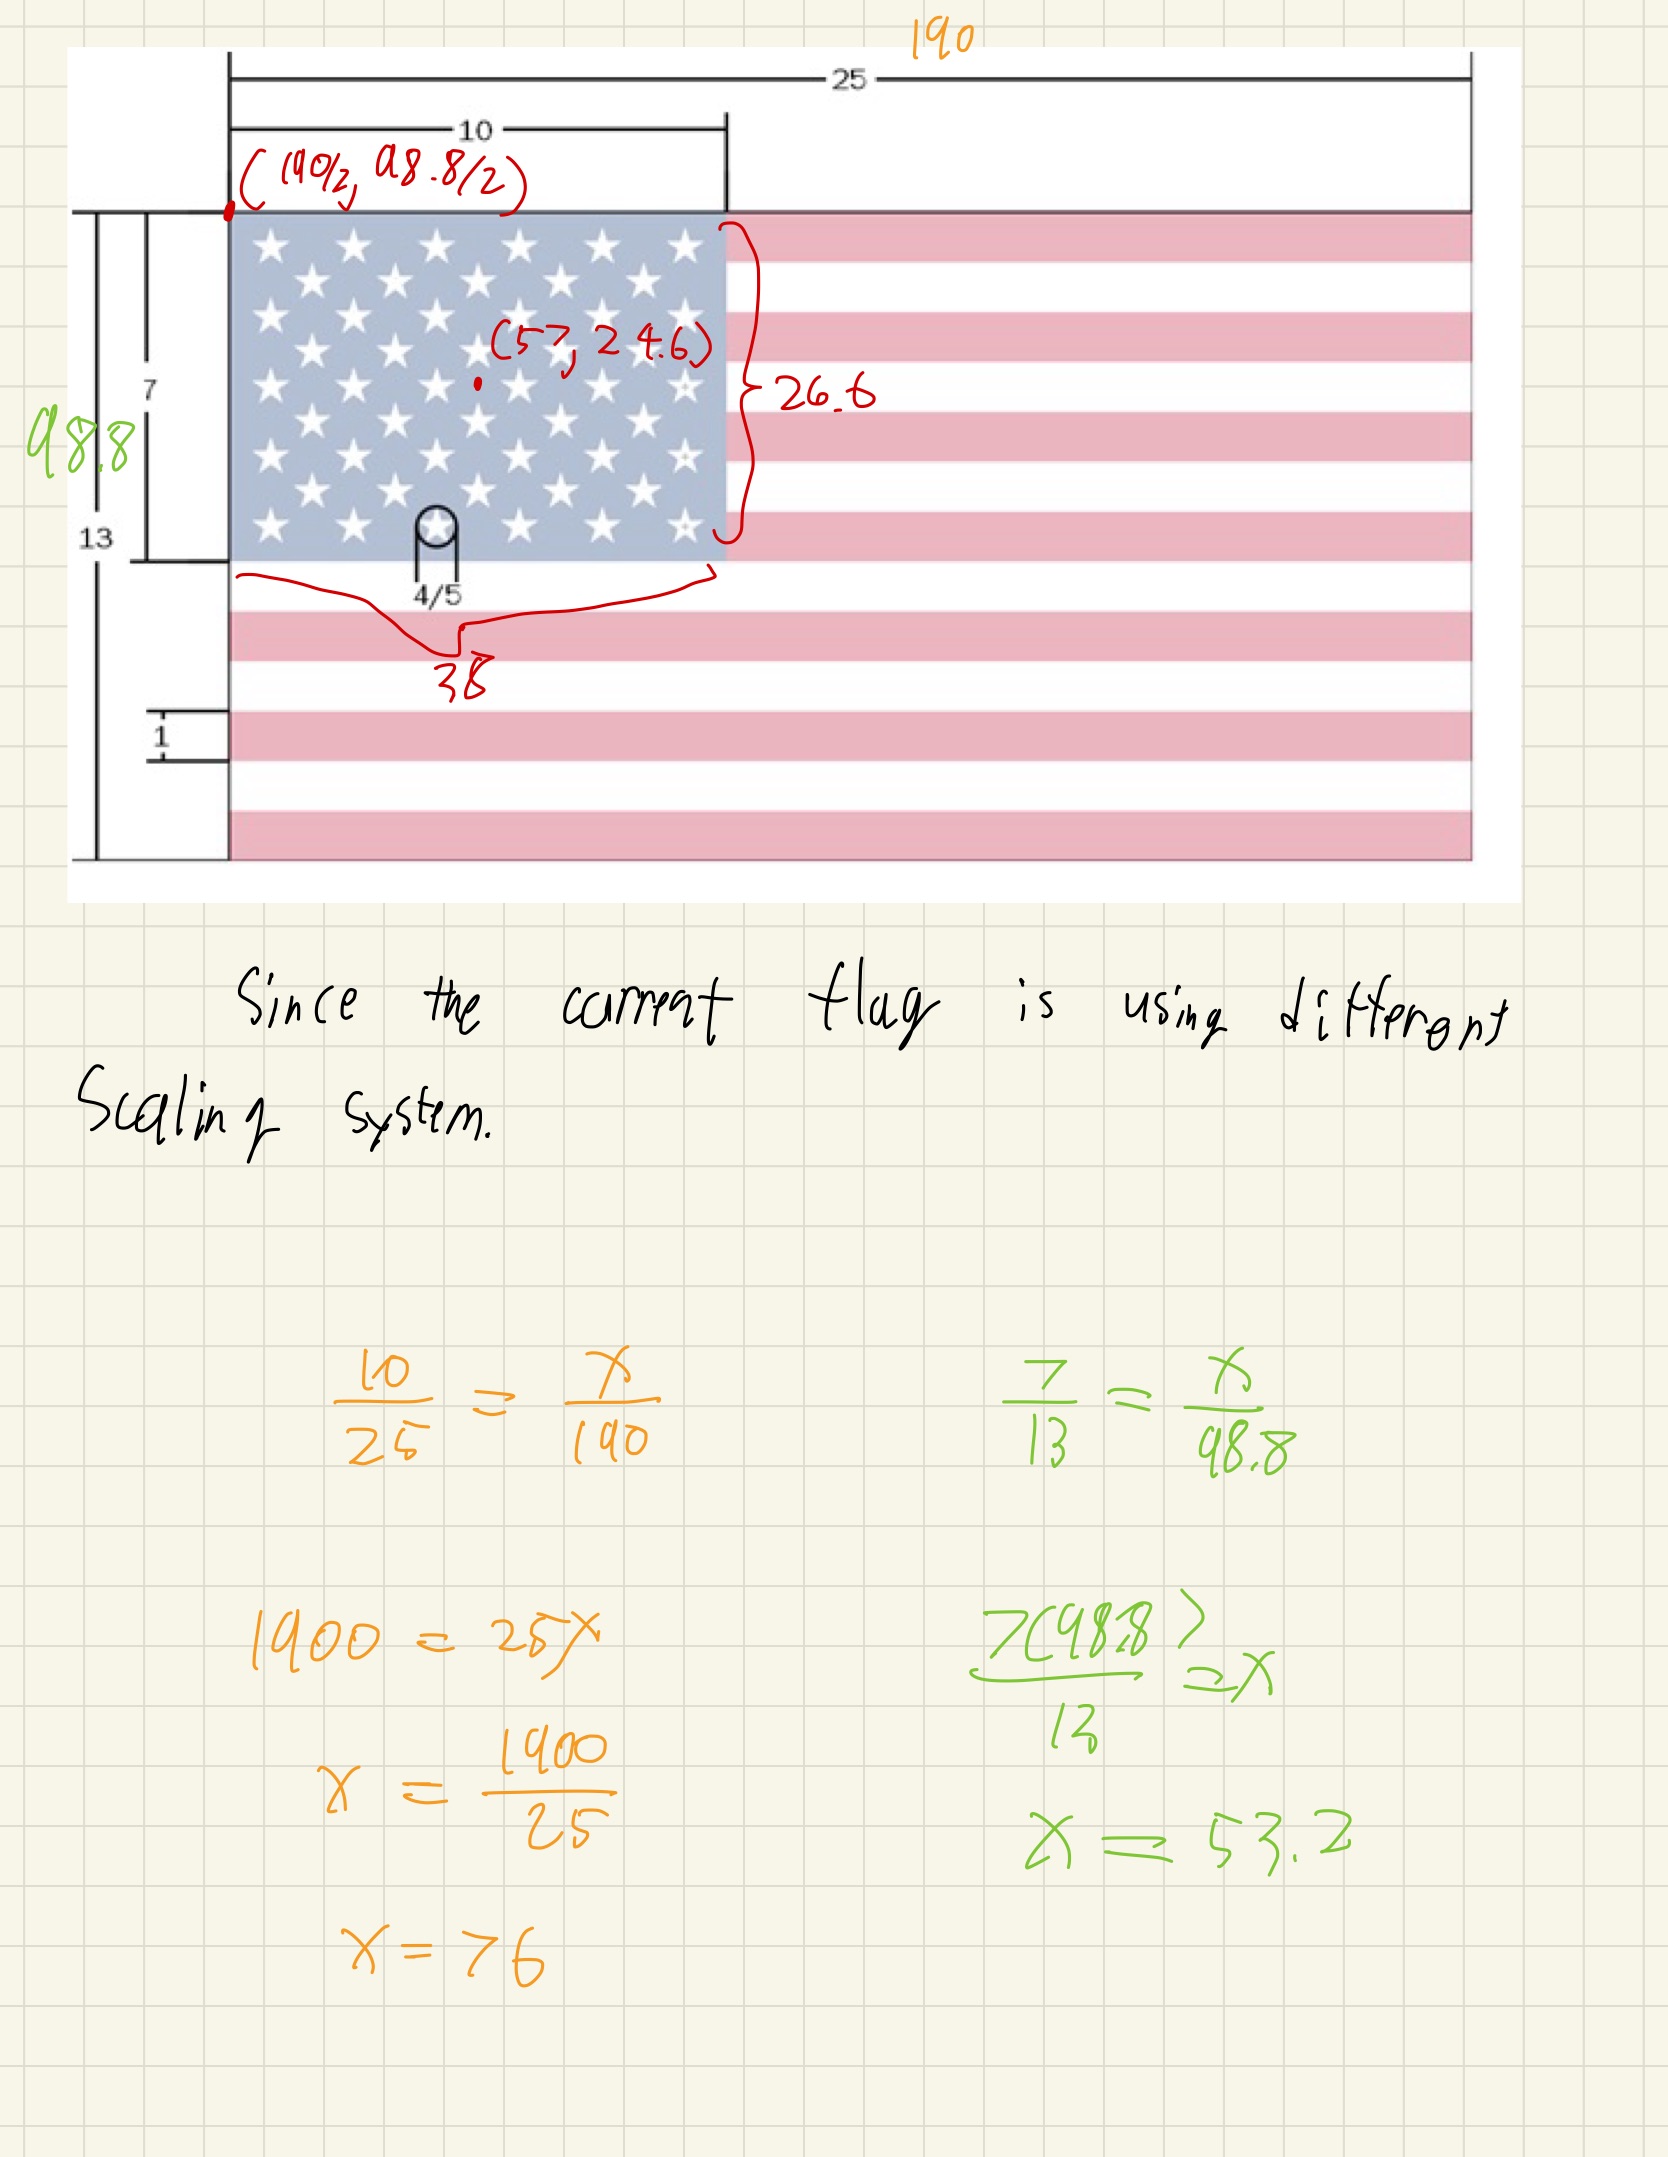 190
25
10
(190/2, 98.8/2)
(57, 24.6)
7
26.6
98.8
13
4/5
38
1
Since the current flag is using different
Scaling system.
10/25 = x/190
7/13 = x/98.8
1900 = 25x
7(98.8)/13 = x
x = 1900/25
x = 53.2
x = 76